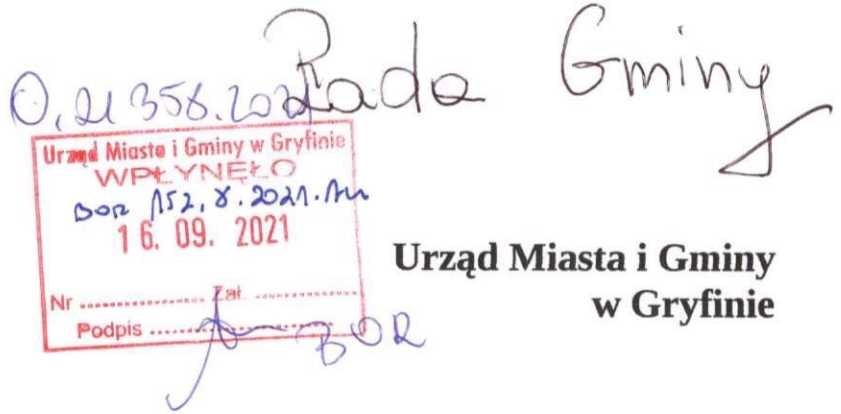 Rada Gminy
O.21358.2021
Urząd Miasta i Gminy w Gryfinie
WPŁYNĘŁO
BOR 152.8.2021.
16. 09. 2021
Nr .................. Zał. ..................
Podpis ..................
BOR
Urząd Miasta i Gminy
w Gryfinie